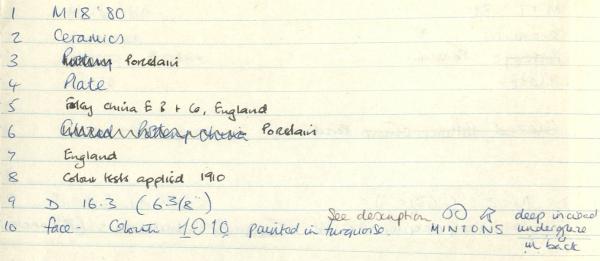 1 M18'80
2 Ceramics
3 Pottery Porcelain
4 Plate
5 Foley China E B + Co, England
6 Glazed Pottery China Porcelain
7 England
8 Colour tests applied 1910
9 D 16.3 (6 3/8")
See description MINTONS deep incised underglaze in back
10 face - Colours 1910 painted in turquoise.